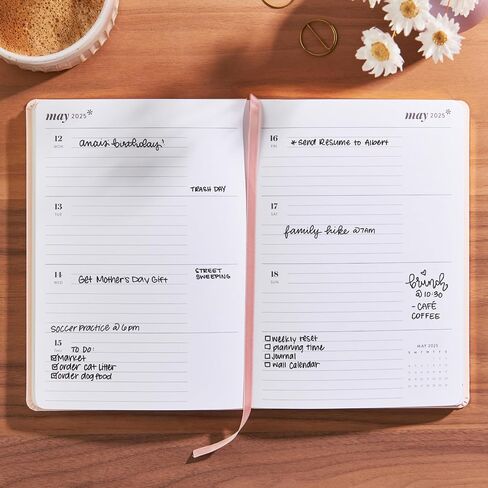 may 2025*
12
MON
anais birthday!
TRASH DAY
13
TUE
14
WED
STREET
SWEEPING
Get Mother's Day Gift
Soccer Practice @ 6pm
15
THU
TO DO:
Market
order cat litter
order dog food
may 2025*
16
FRI
* Send Resume to Albert
17
SAT
family hike @ 7AM
18
SUN
brunch
@ 10:30
- CAFÉ
COFFEE
weekly reset
planning time
Journal
wall Calendar
MAY 2025
S M T W T F S